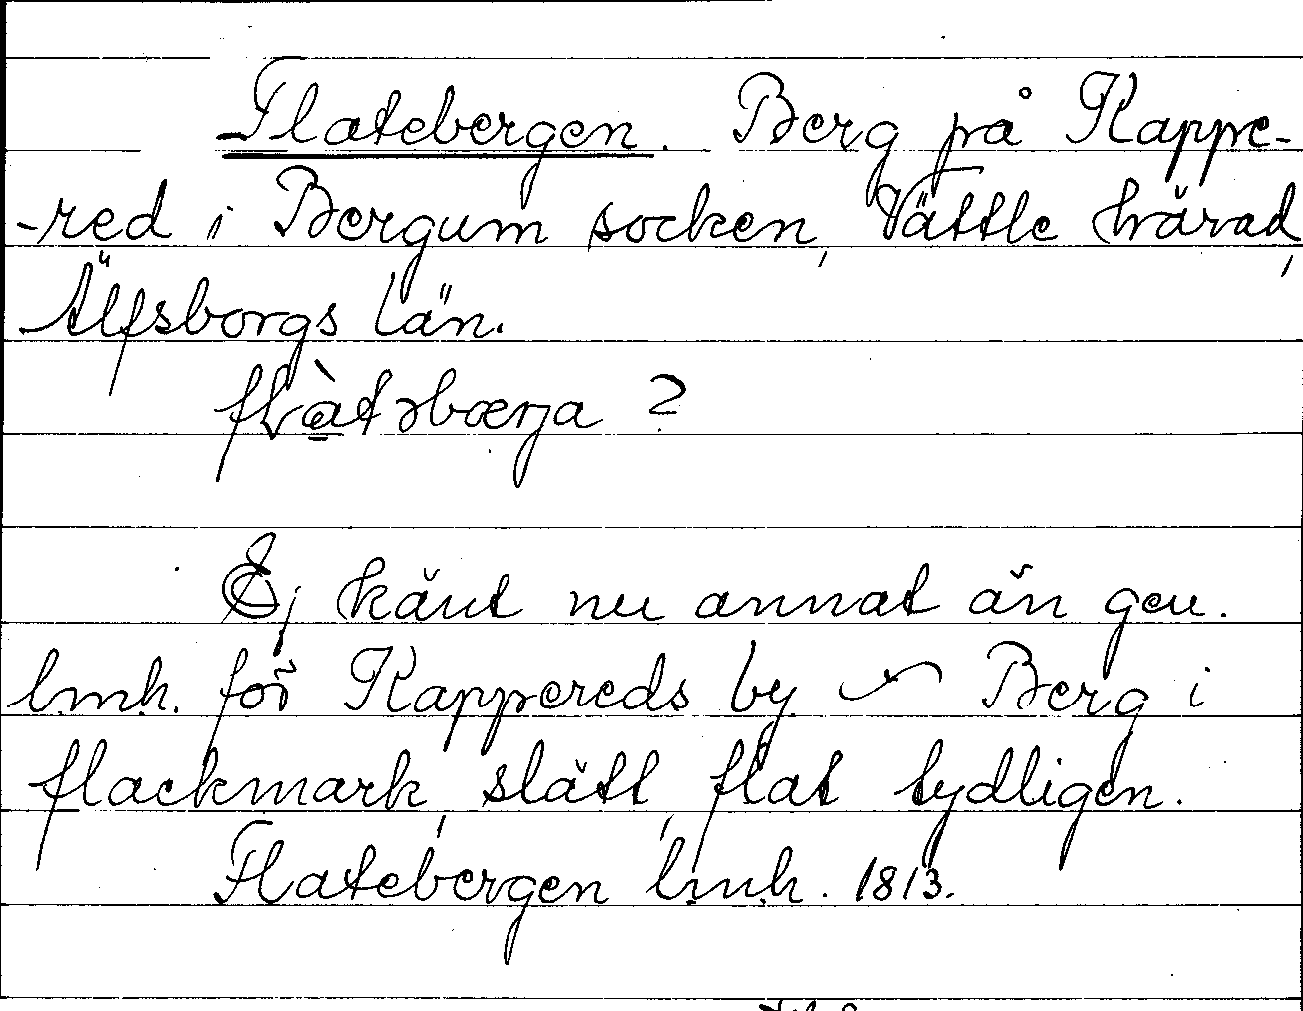 Flatebergen. Berg på Kappe-
-red i Bergum socken, Vättle härad,
Älfsborgs län.
flàtəbærja ?
Ej känt nu annat än gen.
lmh. för Kappereds by. Berg i
flackmark, slätt, flat tydligen.
Flatebergen lmh. 1813.